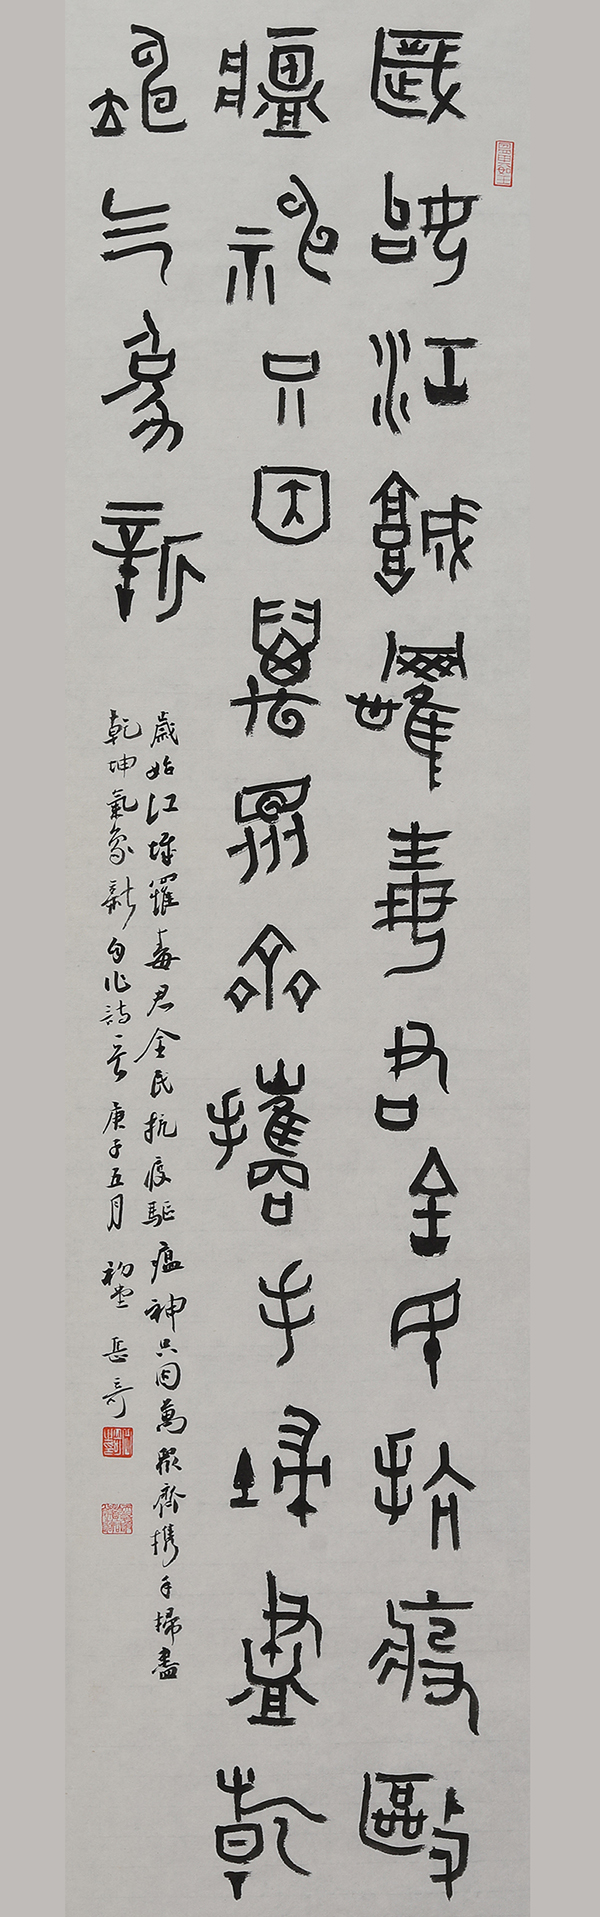 歲始江城罹毒君全民抗疫驅
瘟神只因萬眾齊攜手掃盡乾
坤氣象新
歲始江城罹毒君全民抗疫驅瘟神只因萬眾齊携手掃盡
乾坤氣象新自作詩一首庚子五月岳奇